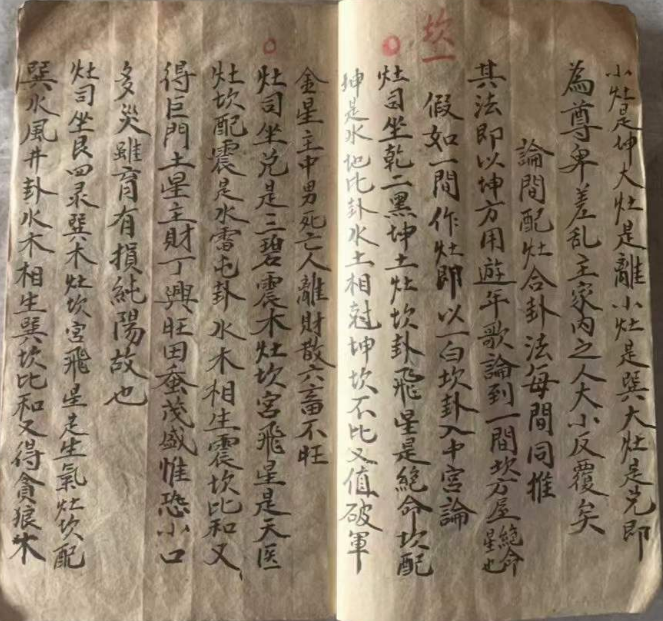 小灶是坤大灶是離小灶是巽大灶是兑即
為尊卑差乱主家内之人大小反覆矣
論間配灶合卦法每間同推
其法即以坤方用遊年歌論到一間坎方屋絶命星也
坎一
假如一間作灶即以一白坎卦入中宮論
灶司坐乾二黑坤土灶坎卦飛星是絕命坎配
坤是水地比卦水土相尅坤坎不比又值破軍
金星主中男死亡人離財散六畜不旺
灶司坐兑是三碧震木灶坎宮飛星是天医
灶坎配震是水雷屯卦水木相生震坎比和又
得巨門土星主財丁興旺田蚕茂盛惟恐小口
多災雖育有損純陽故也
灶司坐艮四录巽木灶坎宮飛星是生氣灶坎配
巽水風井卦水木相生巽坎比和又得貪狼木